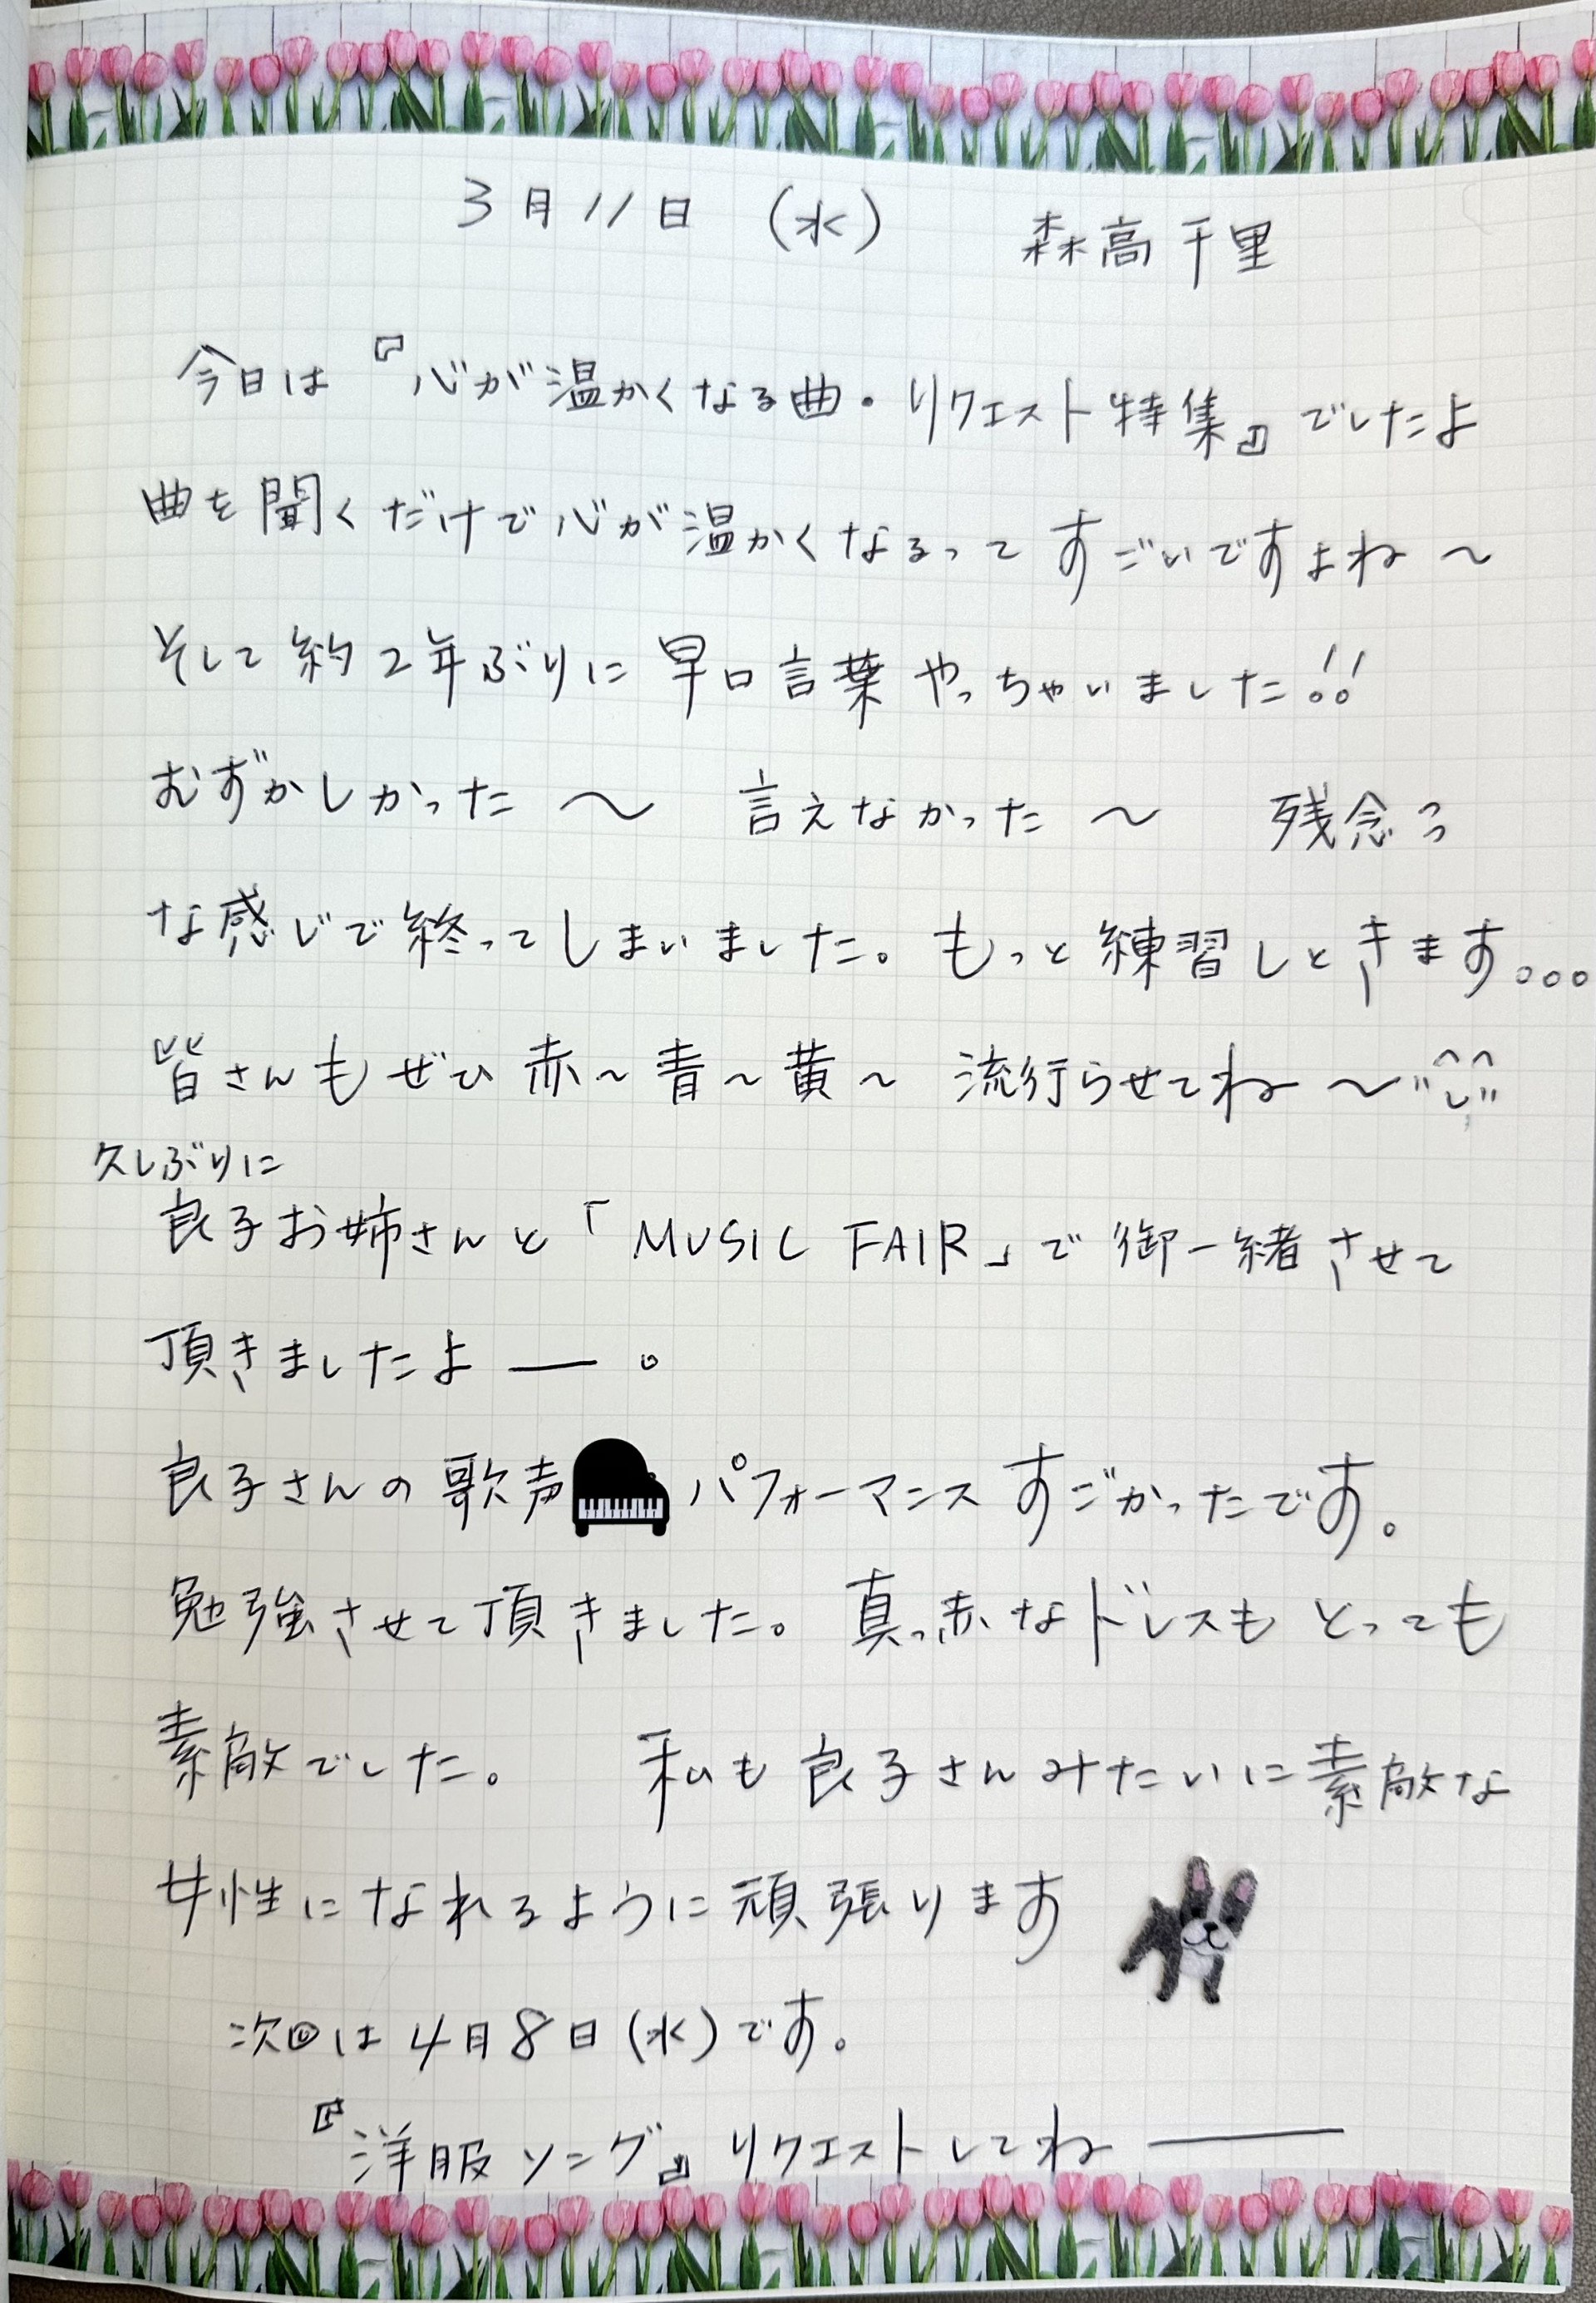 3月11日 (水) 森高千里
今日は『心が温かくなる曲・リクエスト特集』でしたよ
曲を聞くだけで心が温かくなるって すごいですよね〜
そして約2年ぶりに早口言葉やっちゃいました!!
むずかしかった〜 言えなかった〜 残念っ
な感じで終ってしまいました。もっと練習しときます。。。
皆さんもぜひ赤〜青〜黄〜 流行らせてね〜
久しぶりに
良子お姉さんと「MUSIC FAIR」で御一緒させて
頂きましたよー。
良子さんの歌声 パフォーマンスすごかったです。
勉強させて頂きました。真っ赤なドレスもとっても
素敵でした。 私も良子さんみたいに素敵な
女性になれるように頑張ります
次回は4月8日(水)です。
『洋服ソング』リクエストしてねー